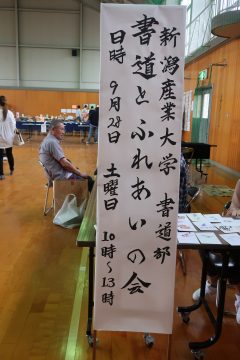 新潟産業大学 書道部
書道とふれあいの会
日時 9月28日 土曜日 10時～13時